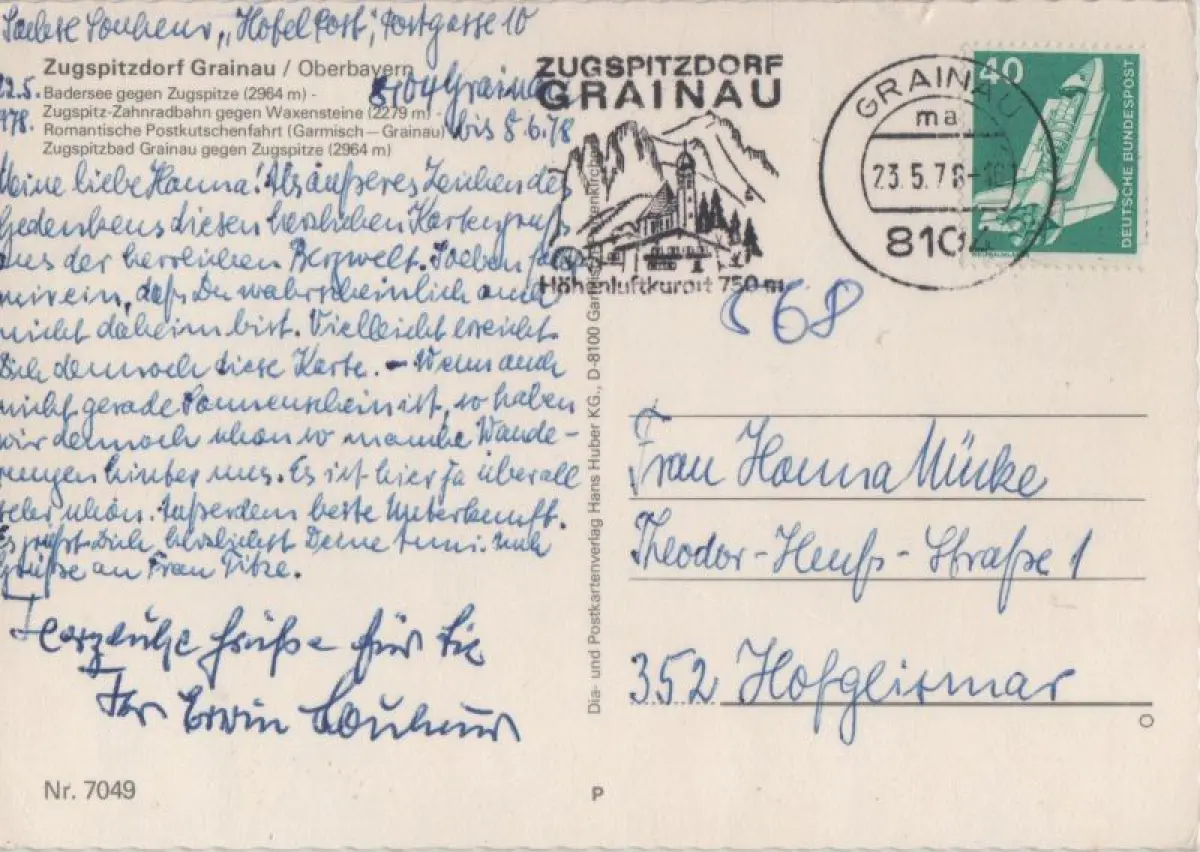 "Hotel Post", Postgasse 10
8104 Grainau
22.5. bis 8.6.78
1978.
Zugspitzdorf Grainau / Oberbayern
Badersee gegen Zugspitze (2964 m) -
Zugspitz-Zahnradbahn gegen Waxensteine (2279 m) -
Romantische Postkutschenfahrt (Garmisch – Grainau)
Zugspitzbad Grainau gegen Zugspitze (2964 m)
Meine liebe Hanna! Als äußeres Zeichen des
Gedenkens diesen herzlichen Kartengruß
aus der herrlichen Bergwelt. Soeben fällt
mir ein, daß Du wahrscheinlich
nicht daheim bist. Vielleicht erreicht
Dich dennoch diese Karte. – Wenn auch
nicht gerade Sonnenschein ist, so haben
wir dennoch schon so manche Wande-
rungen hinter uns. Es ist hier ja überall
sehr schön. Außerdem beste Unterkunft.
Es grüßt Dich herzlichst Deine
Grüße an Frau Titze.
Herzliche Grüße für Sie
Ihr Erwin
Nr. 7049
P
Dia- und Postkartenverlag Hans Huber KG., D-8100 Garmisch-Partenkirchen
ZUGSPITZDORF
GRAINAU
Höhenluftkurort 750 m
GRAINAU
ma
23.5.78-16
8104
40
DEUTSCHE BUNDESPOST
568
Frau Hanna Mücke
Theodor-Heuß-Straße 1
352 Hofgeismar